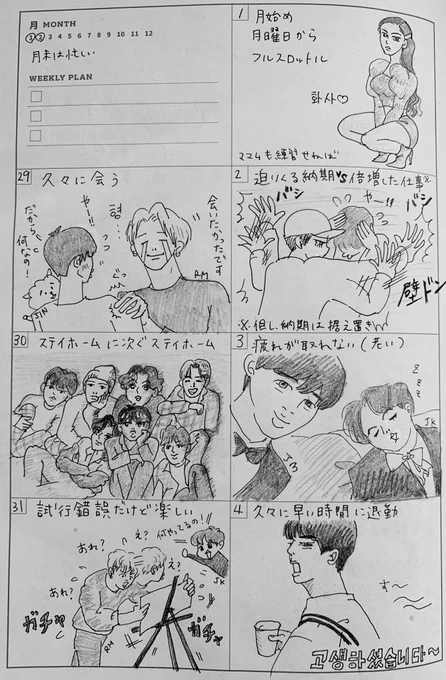 月 MONTH
1 2 3 4 5 6 7 8 9 10 11 12
月末は忙しい
WEEKLY PLAN
1
月始め
月曜日から
フルスロットル
화사♡
ママムも練習せねば
29 久々に会う
会いたかったです
형…
やー!!
だから
何なの?
ぐっ
JIN
RM
2 迫りくる納期vs倍増した仕事※
バシ
やー!!
バシ
壁ドン
※但し、納期は据え置き
30 ステイホームに次ぐステイホーム
3 疲れが取れない(老い)
zzz
JK
31 試行錯誤だけど楽しい
え? 何やってるの!!
あれ?
え?
あれ?
JK
ガチャ
ガチャ
RM
4 久々に早い時間に退勤
す〜
고생하셨습니다~